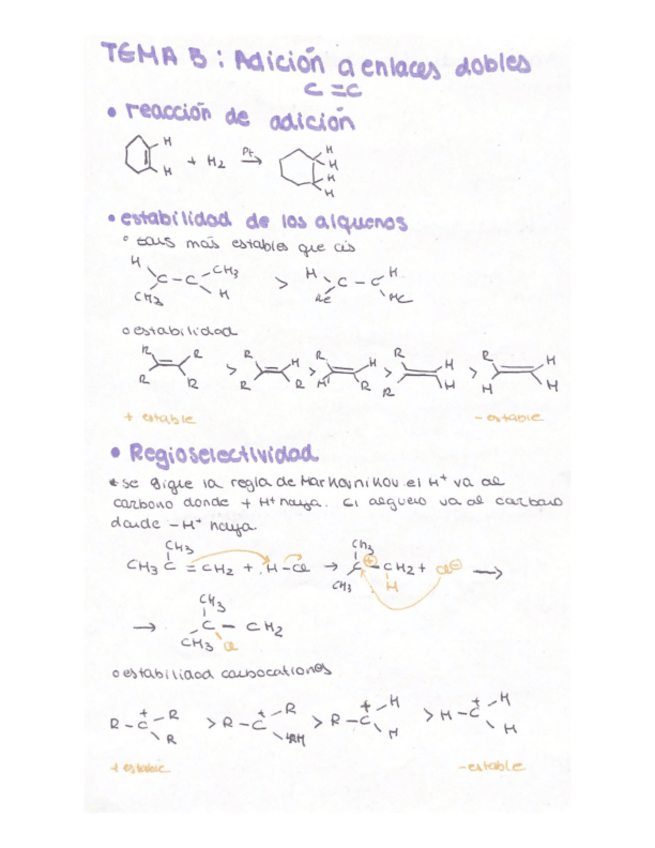 TEMA 3: Adición a enlaces dobles
C=C
• reacción de adición
H H + H2 Pt → H H H H
• estabilidad de los alquenos
° trans más estables que cis
H CH3 C-C CH3 H > H C-C H
o estabilidad
R R R R > R H R R > R H H R > R H R H > R H H H
+ estable - estable
• Regioselectividad
* se sigue la regla de Markovnikov. el H+ va al
carbono donde + H+ haya. El alquero va al carbono
donde - H+ haya.
CH3
CH3 C = CH2 + H-Cl → CH3 C + CH2 + Cl ⊖ →
CH3 H
→ CH3 C - CH2
CH3 Cl
o estabilidad carbocationes
R-C+ R R > R-C+ R > R-C+ H H > H-C+ H H
+ estable - estable